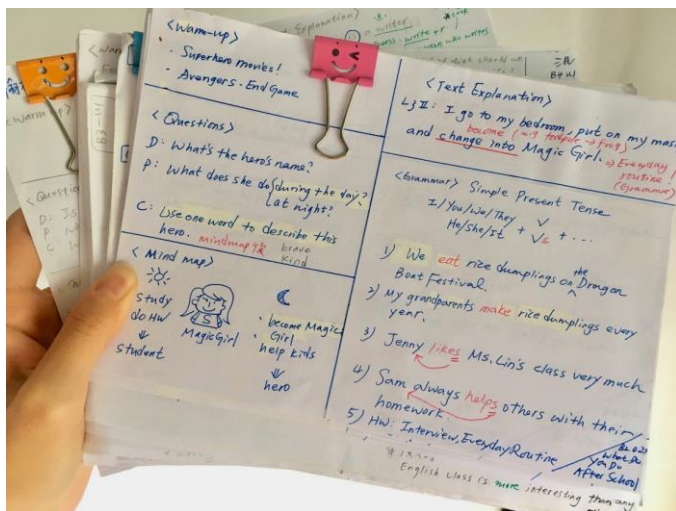 <Warm-up>
· Superhero movies!
· Avengers: End Game
<Questions>
D: What's the hero's name?
P: What does she do during the day?
at night?
C: Use one word to describe this
hero. mindmap
brave
kind
<Mind map>
study
do HW
student
S
Magic Girl
· become Magic
Girl
· help kids
hero
<Text Explanation>
L3 II: I go to my bedroom, put on my mask
and change into Magic Girl.
become (eg tadpole → frog)
⇒ Everyday
routine!
(Grammar)
<Grammar> Simple Present Tense
I/You/We/They V
He/She/It + Vs + ...
1) We eat rice dumplings on the Dragon
Boat Festival.
2) My grandparents make rice dumplings every
year.
3) Jenny likes Ms. Lin's class very much
4) Sam always helps others with their
homework.
5) HW: Interview, Everyday Routine
What Do
You Do
After School
English class is more interesting than any
Explanation>
a writer.
write + er
who writes
<Warm
<Warm-u
<Question
B3-U1